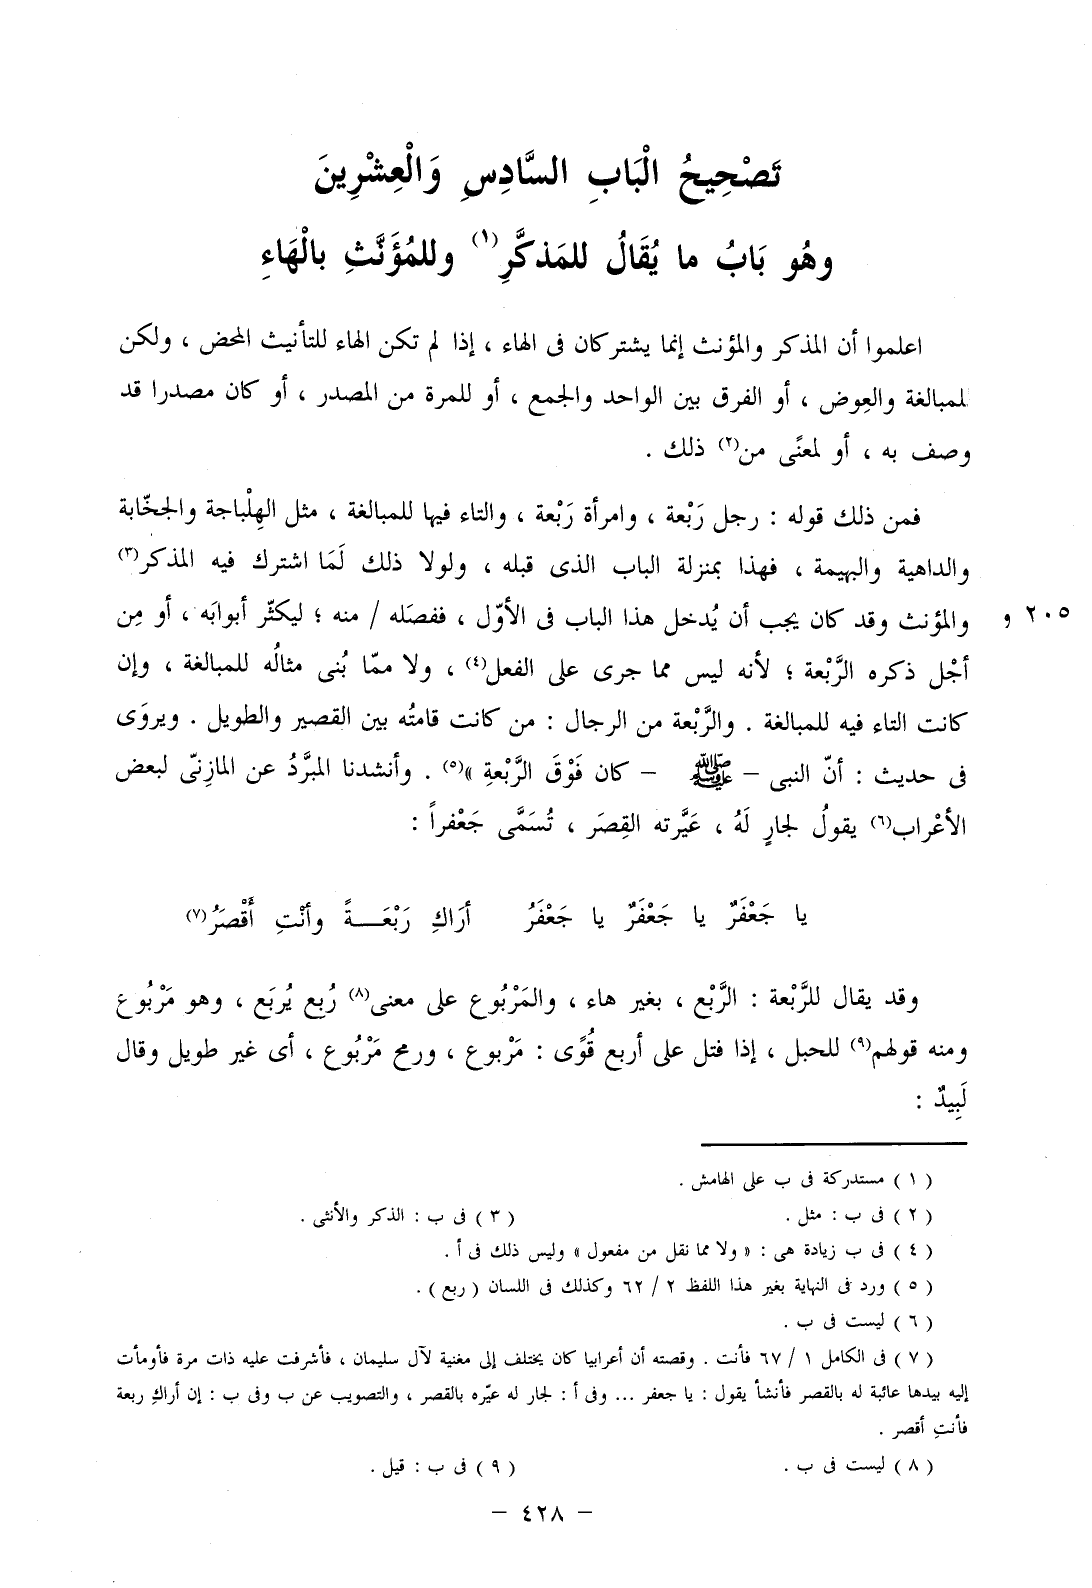 تَصْحِيحُ الْبَابِ السَّادِسِ وَالْعِشْرِينَ
وهُو بَابُ ما يُقَالُ للمَذكَّرِ(١) وللمُؤَنَّثِ بالْهَاءِ
اعلموا أن المذكر والمؤنث إنما يشتركان فى الهاء ، إذا لم تكن الهاء للتأنيث المحض ، ولكن
للمبالغة والعِوض ، أو الفرق بين الواحد والجمع ، أو للمرة من المصدر ، أو كان مصدرا قد
وصف به ، أو لمعنًى من(٢) ذلك .
فمن ذلك قوله : رجل رَبْعة ، وامرأة رَبْعة ، والتاء فيها للمبالغة ، مثل الهِلْباجة والجخّابة
والداهية والبهيمة ، فهذا بمنزلة الباب الذى قبله ، ولولا ذلك لَمَا اشترك فيه المذكر(٣)
والمؤنث وقد كان يجب أن يُدخل هذا الباب فى الأوّل ، ففصَله / منه ؛ ليكثّر أبوابَه ، أو مِن ٢٠٥ و
أجْل ذكره الرَّبْعة ؛ لأنه ليس مما جرى على الفعل(٤) ، ولا ممّا بُنى مثالُه للمبالغة ، وإن
كانت التاء فيه للمبالغة . والرَّبْعة من الرجال : من كانت قامتُه بين القصير والطويل . ويروَى
فى حديث : أنّ النبى – ﷺ – كان فَوْقَ الرَّبْعةِ »(٥) . وأنشدنا المبرَّدُ عن المازِنىّ لبعض
الأعْراب(٦) يقولُ لجارٍ لَهُ ، عَيَّرته القِصَر ، تُسَمَّى جَعْفراً :
يا جَعْفَرٌ يا جَعْفَرٌ يا جَعْفَرُ أرَاكِ رَبْعَــــةً وأنْتِ أَقْصَرُ(٧)
وقد يقال للرَّبْعة : الرَّبْع ، بغير هاء ، والمَرْبُوع على معنى(٨) رُبِع يُربَع ، وهو مَرْبُوع
ومنه قولهم(٩) للحبل ، إذا فتل على أربع قُوًى : مَرْبوع ، ورمح مَرْبُوع ، أى غير طويل وقال
لَبِيدٌ :
( ١ ) مستدركة فى ب على الهامش .
( ٢ ) فى ب : مثل . ( ٣ ) فى ب : الذكر والأنثى .
( ٤ ) فى ب زيادة هى : « ولا مما نقل من مفعول » وليس ذلك فى أ .
( ٥ ) ورد فى النهاية بغير هذا اللفظ ٢ / ٦٢ وكذلك فى اللسان ( ربع ) .
( ٦ ) ليست فى ب .
( ٧ ) فى الكامل ١ / ٦٧ فأنت . وقصته أن أعرابيا كان يختلف إلى مغنية لآل سليمان ، فأشرفت عليه ذات مرة فأومأت
إليه بيدها عائبة له بالقصر فأنشأ يقول : يا جعفر ... وفى أ : لجار له عيّره بالقصر ، والتصويب عن ب وفى ب : إن أراكِ ربعة
فأنتِ أقصر .
( ٨ ) ليست فى ب . ( ٩ ) فى ب : قيل .
– ٤٢٨ –